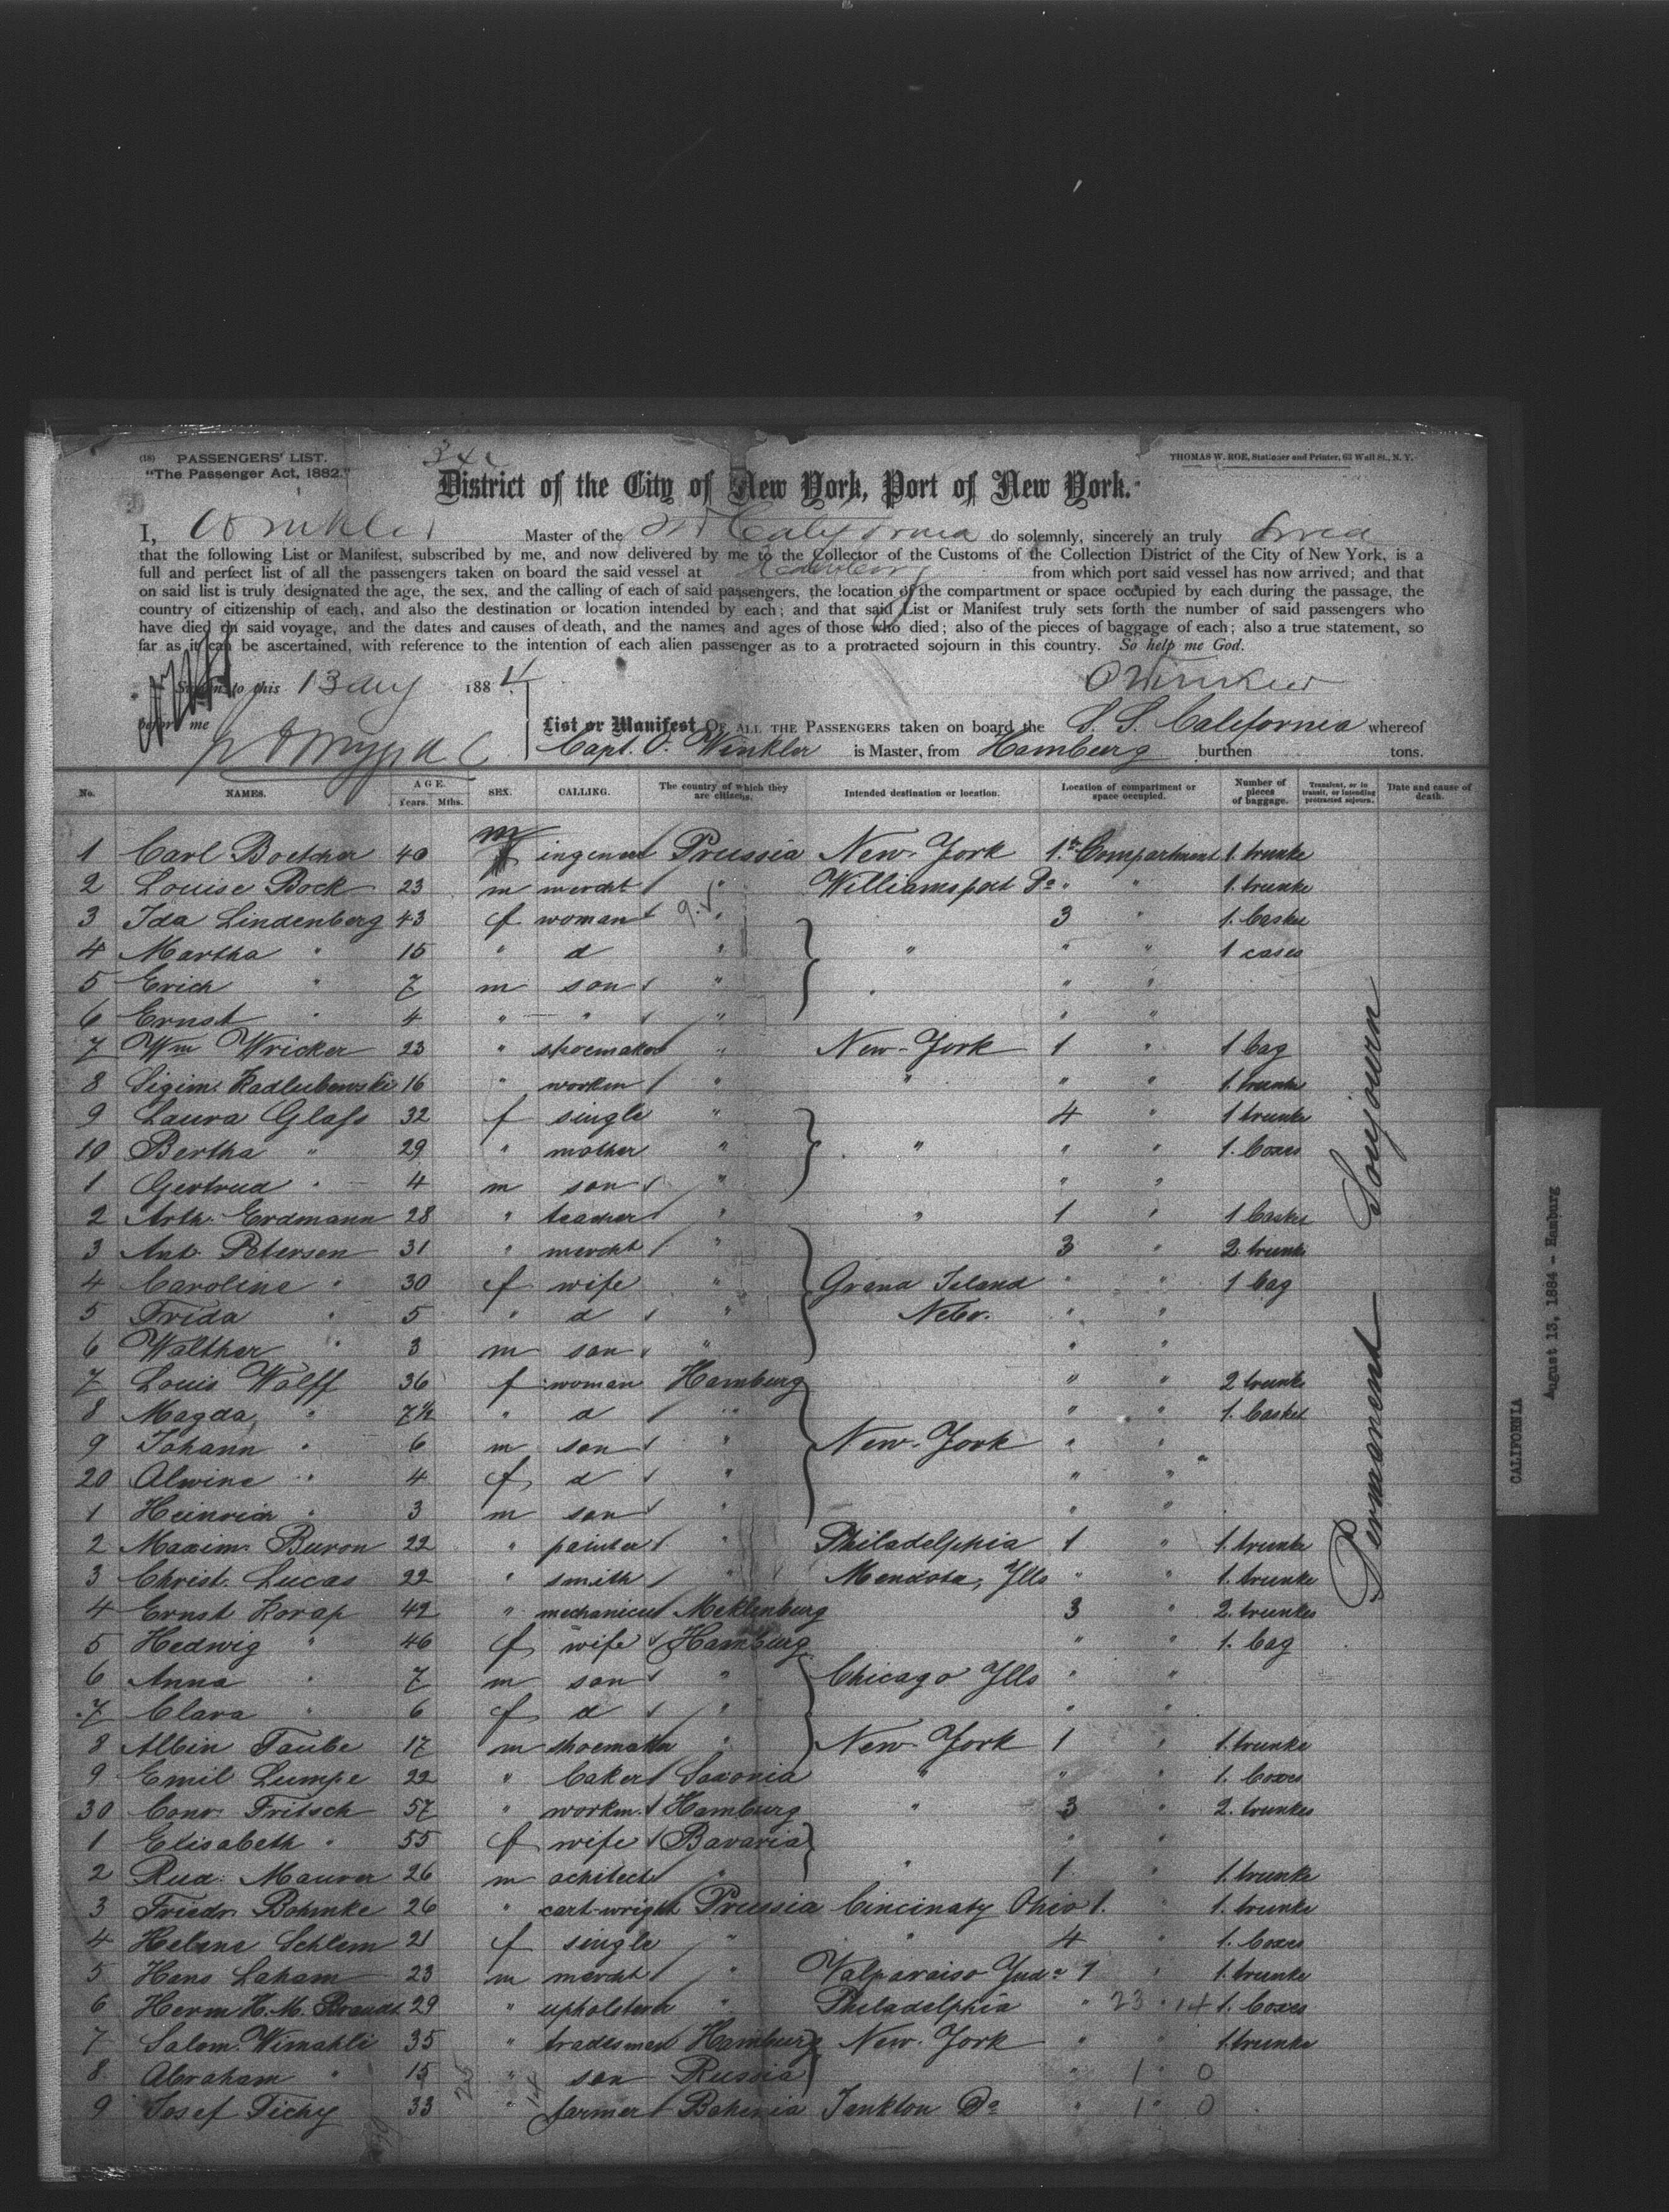 (18) PASSENGERS' LIST.
"The Passenger Act, 1882."
THOMAS W. ROE, Stationer and Printer, 63 Wall St., N. Y.
District of the City of New York, Port of New York.
I, Winkler Master of the SS California do solemnly, sincerely an truly
that the following List or Manifest, subscribed by me, and now delivered by me to the Collector of the Customs of the Collection District of the City of New York, is a
full and perfect list of all the passengers taken on board the said vessel at Hamburg from which port said vessel has now arrived; and that
on said list is truly designated the age, the sex, and the calling of each of said passengers, the location of the compartment or space occupied by each during the passage, the
country of citizenship of each, and also the destination or location intended by each; and that said List or Manifest truly sets forth the number of said passengers who
have died on said voyage, and the dates and causes of death, and the names and ages of those who died; also of the pieces of baggage of each; also a true statement, so
far as it can be ascertained, with reference to the intention of each alien passenger as to a protracted sojourn in this country. So help me God.
Sworn to this 13 Aug 1884
O Winkler
before me
List or Manifest OF ALL THE PASSENGERS taken on board the S. S. California whereof
Capt. O. Winkler is Master, from Hamburg burthen tons.
No. NAMES. AGE. Years. Mths. SEX. CALLING. The country of which they are citizens. Intended destination or location. Location of compartment or space occupied. Number of pieces of baggage. Transient, or in transit, or intending protracted sojourn. Date and cause of death.
1 Carl Boetcher 40 m ingeneer Prussia New-York 1st Compartment 1 trunke
2 Louise Bock 23 m mercht " Williamsport Pa " " 1 trunke
3 Ida Lindenberg 43 f woman " 3 " 1 basket
4 Martha " 15 " d " " " " 1 cases
5 Erich " 7 m son " " "
6 Ernst " 4 " " " " "
7 Wm Wricker 23 " shoemaker " New-York 1 " 1 bag
8 Sigim. Radlubowski 16 " workm " " " " 1 trunke
9 Laura Glass 32 f single " 4 " 1 trunke
10 Bertha " 29 " mother " " " " 1 boxes
1 Gertrud " 4 m son " " "
2 Arth. Erdmann 28 " teacher " " 1 " 1 basket
3 Ant. Petersen 31 " mercht " 3 " 2 trunke
4 Caroline " 30 f wife " Grand Island " " 1 bag
5 Frida " 5 " d " Nebr. " "
6 Walther " 3 m son " " "
7 Louis Wolff 36 f woman Hamburg " " 2 trunke
8 Magda " 7½ " d " " " 1 basket
9 Johann " 6 m son " New-York " "
20 Alwine " 4 f d " " "
1 Heinrich " 3 m son " " "
2 Maxim. Buron 22 " painter " Philadelphia 1 " 1 trunke
3 Christ. Lucas 22 " smith " Mendota, Ills " " 1 trunke
4 Ernst Korap 42 " mechanicus Meklenburg 3 " 2 trunkes
5 Hedwig " 46 f wife Hamburg " " 1 bag
6 Anna " 7 m son " Chicago Ills " "
7 Clara " 6 f d " " "
8 Albin Taube 17 m shoemaker " New-York 1 " 1 trunke
9 Emil Lumpe 22 " baker Saxonia " " " 1 boxes
30 Conr. Fritsch 57 " workm. Hamburg " 3 " 2 trunkes
1 Elisabeth " 55 f wife Bavaria " "
2 Rud. Maurer 26 m achitect " " 1 " 1 trunke
3 Friedr. Bohmke 26 " cart-wright Prussia Cincinaty Ohio 1 " 1 trunke
4 Helene Schlem 21 f single " " 4 " 1 boxes
5 Hans Laham 23 m mercht " Valparaiso Inda 1 " 1 trunke
6 Herm H. M. Brandt 29 " upholsterer " Philadelphia " 23 " 14 1 boxes
7 Salom. Wimahli 35 " tradesman Hamburg New-York " " 1 trunke
8 Abraham " 15 " son Russia " 1 " 0
9 Josef Tichy 33 " farmer Bohemia Jankton Da " 1 " 0
Permanent Soujourn
CALIFORNIA
August 13, 1884 - Hamburg